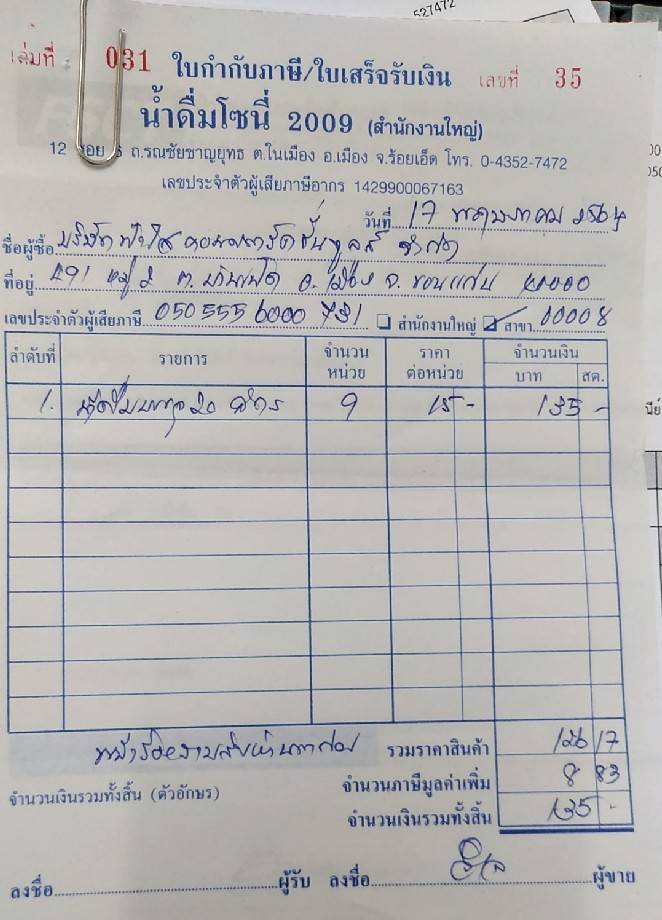 527472
เล่มที่ 031 ใบกำกับภาษี/ใบเสร็จรับเงิน เลขที่ 35
น้ำดื่มโซนี่ 2009 (สำนักงานใหญ่)
12 ซอย 6 ถ.รณชัยชาญยุทธ ต.ในเมือง อ.เมือง จ.ร้อยเอ็ด โทร. 0-4352-7472
เลขประจำตัวผู้เสียภาษีอากร 1429900067163
วันที่ 17 พฤษภาคม 2564
ชื่อผู้ซื้อ บริษัท จำกัด
ที่อยู่ 491 หมู่ 2 ต. บ้านเป็ด อ. เมือง จ. ขอนแก่น 40000
เลขประจำตัวผู้เสียภาษี 050 555 6000 731 สำนักงานใหญ่ สาขา 00008
ลำดับที่ รายการ จำนวนหน่วย ราคาต่อหน่วย จำนวนเงิน
บาท สต.
1. น้ำดื่ม 20 ลิตร 9 15 - 135 -
หนึ่งร้อยสามสิบห้าบาทถ้วน รวมราคาสินค้า 126 17
จำนวนภาษีมูลค่าเพิ่ม 8 83
จำนวนเงินรวมทั้งสิ้น (ตัวอักษร) จำนวนเงินรวมทั้งสิ้น 135 -
ลงชื่อ ผู้รับ ลงชื่อ ผู้ขาย